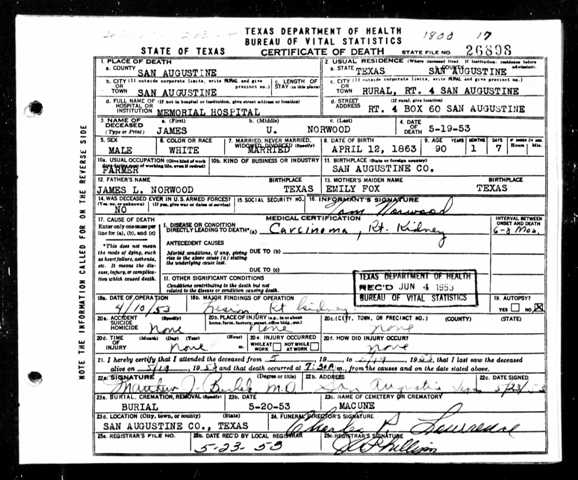 TEXAS DEPARTMENT OF HEALTH
BUREAU OF VITAL STATISTICS
1800 17
STATE OF TEXAS CERTIFICATE OF DEATH STATE FILE NO. 26898
1. PLACE OF DEATH 2. USUAL RESIDENCE (Where deceased lived. If institution: residence before admission)
a. COUNTY SAN AUGUSTINE a. STATE TEXAS b. COUNTY SAN AUGUSTINE
b. CITY (If outside corporate limits, write RURAL and give precinct no.) OR TOWN SAN AUGUSTINE c. LENGTH OF STAY (in this place) c. CITY (If outside corporate limits, write RURAL and give precinct no.) OR TOWN RURAL, RT. 4 SAN AUGUSTINE
d. FULL NAME OF (If not in hospital or institution, give street address or location) HOSPITAL OR INSTITUTION MEMORIAL HOSPITAL d. STREET ADDRESS (If rural, give location) RT. 4 BOX 60 SAN AUGUSTINE
3. NAME OF DECEASED (Type or Print) a. (First) JAMES b. (Middle) U. c. (Last) NORWOOD 4. DATE OF DEATH 5-19-53
5. SEX MALE 6. COLOR OR RACE WHITE 7. MARRIED, NEVER MARRIED, WIDOWED, DIVORCED (Specify) MARRIED 8. DATE OF BIRTH APRIL 12, 1863 9. AGE YEARS 90 MONTHS 1 DAYS 7 IF UNDER 24 HRS. Hours Min.
10a. USUAL OCCUPATION (Give kind of work done during most of working life, even if retired) FARMER 10b. KIND OF BUSINESS OR INDUSTRY 11. BIRTHPLACE (State or foreign country) SAN AUGUSTINE CO.
12. FATHER'S NAME JAMES L. NORWOOD BIRTHPLACE TEXAS 13. MOTHER'S MAIDEN NAME EMILY FOX BIRTHPLACE TEXAS
14. WAS DECEASED EVER IN U.S. ARMED FORCES? (Yes, no, or unknown) (If yes, give war or dates of service) NO 15. SOCIAL SECURITY NO. 16. INFORMANT'S SIGNATURE Norwood
17. CAUSE OF DEATH MEDICAL CERTIFICATION INTERVAL BETWEEN ONSET AND DEATH
Enter only one cause per line for (a), (b), and (c) I. DISEASE OR CONDITION DIRECTLY LEADING TO DEATH* (a) Carcinoma, Rt. Kidney 6-8 Mos.
*This does not mean the mode of dying, such as heart failure, asthenia, etc. It means the disease, injury, or complication which caused death. ANTECEDENT CAUSES
Morbid conditions, if any, giving rise to the above cause (a) stating the underlying cause last. DUE TO (b)
DUE TO (c)
II. OTHER SIGNIFICANT CONDITIONS
Conditions contributing to the death but not related to the disease or condition causing death.
TEXAS DEPARTMENT OF HEALTH
REC'D JUN 4 1953
BUREAU OF VITAL STATISTICS
18a. DATE OF OPERATION 4/10/53 18b. MAJOR FINDINGS OF OPERATION Rt Kidney 19. AUTOPSY? YES NO X
20a. ACCIDENT SUICIDE HOMICIDE (Specify) None 20b. PLACE OF INJURY (e.g., in or about home, farm, factory, street, office bldg., etc.) None 20c. (CITY, TOWN, OR PRECINCT NO.) (COUNTY) (STATE) None
20d. TIME OF INJURY (Month) (Day) (Year) (Hour) None 20e. INJURY OCCURRED WHILE AT WORK NOT WHILE AT WORK 20f. HOW DID INJURY OCCUR? None
21. I hereby certify that I attended the deceased from 5 19 to 5/19 1953, that I last saw the deceased
alive on 5/19 1953 and that death occurred at m., from the causes and on the date stated above.
22a. SIGNATURE (Degree or title) M.D. 22b. ADDRESS San Augustine Texas 22c. DATE SIGNED
23a. BURIAL, CREMATION, REMOVAL (Specify) BURIAL 23b. DATE 5-20-53 23c. NAME OF CEMETERY OR CREMATORY MACUNE
23d. LOCATION (City, town, or county) (State) SAN AUGUSTINE CO., TEXAS 24. FUNERAL DIRECTOR'S SIGNATURE Charles Lawrence
25a. REGISTRAR'S FILE NO. 25b. DATE REC'D BY LOCAL REGISTRAR 5-23-53 25c. REGISTRAR'S SIGNATURE
NOTE THE INFORMATION CALLED FOR ON THE REVERSE SIDE